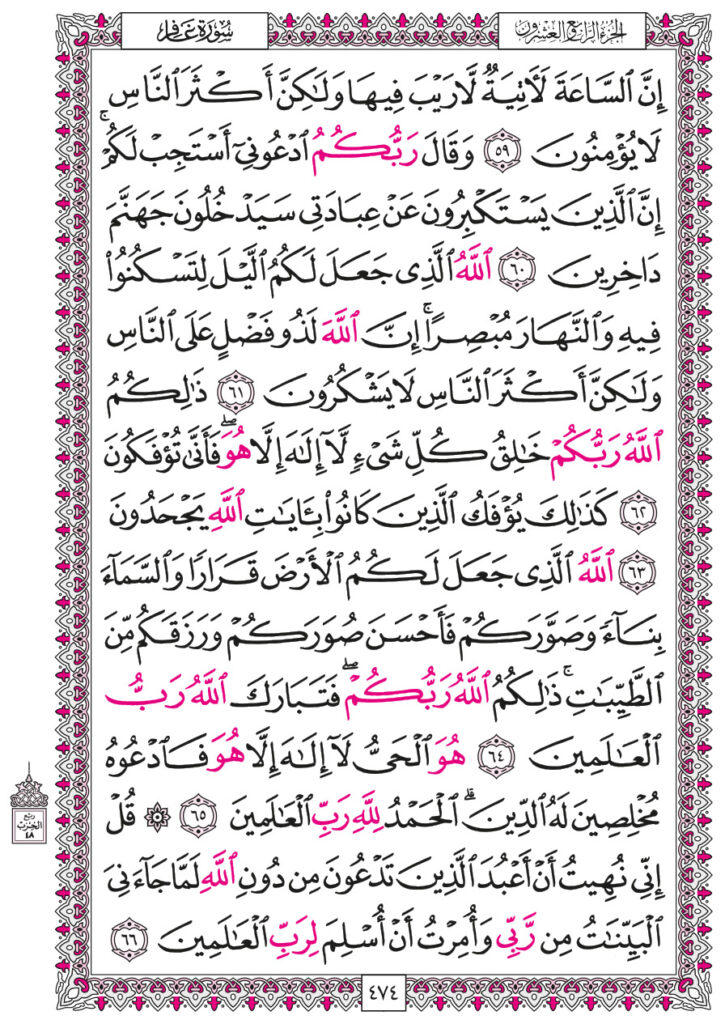 الجُزْءُ الرَّابِعُ العِشْرُونَ
سُورَةُ غَافِر
إِنَّ ٱلسَّاعَةَ لَأٓتِيَةٌ لَّا رَيْبَ فِيهَا وَلَٰكِنَّ أَكْثَرَ ٱلنَّاسِ
لَا يُؤْمِنُونَ ٥٩ وَقَالَ رَبُّكُمُ ٱدْعُونِىٓ أَسْتَجِبْ لَكُمْ ۚ
إِنَّ ٱلَّذِينَ يَسْتَكْبِرُونَ عَنْ عِبَادَتِى سَيَدْخُلُونَ جَهَنَّمَ
دَاخِرِينَ ٦٠ ٱللَّهُ ٱلَّذِى جَعَلَ لَكُمُ ٱلَّيْلَ لِتَسْكُنُوا۟
فِيهِ وَٱلنَّهَارَ مُبْصِرًا ۚ إِنَّ ٱللَّهَ لَذُو فَضْلٍ عَلَى ٱلنَّاسِ
وَلَٰكِنَّ أَكْثَرَ ٱلنَّاسِ لَا يَشْكُرُونَ ٦١ ذَٰلِكُمُ
ٱللَّهُ رَبُّكُمْ خَٰلِقُ كُلِّ شَىْءٍ لَّآ إِلَٰهَ إِلَّا هُوَ ۖ فَأَنَّىٰ تُؤْفَكُونَ
٦٢ كَذَٰلِكَ يُؤْفَكُ ٱلَّذِينَ كَانُوا۟ بِـَٔايَٰتِ ٱللَّهِ يَجْحَدُونَ
٦٣ ٱللَّهُ ٱلَّذِى جَعَلَ لَكُمُ ٱلْأَرْضَ قَرَارًا وَٱلسَّمَآءَ
بِنَآءً وَصَوَّرَكُمْ فَأَحْسَنَ صُوَرَكُمْ وَرَزَقَكُم مِّنَ
ٱلطَّيِّبَٰتِ ۚ ذَٰلِكُمُ ٱللَّهُ رَبُّكُمْ ۖ فَتَبَارَكَ ٱللَّهُ رَبُّ
ٱلْعَٰلَمِينَ ٦٤ هُوَ ٱلْحَىُّ لَآ إِلَٰهَ إِلَّا هُوَ فَٱدْعُوهُ
مُخْلِصِينَ لَهُ ٱلدِّينَ ۗ ٱلْحَمْدُ لِلَّهِ رَبِّ ٱلْعَٰلَمِينَ ٦٥ ۞ قُلْ
إِنِّى نُهِيتُ أَنْ أَعْبُدَ ٱلَّذِينَ تَدْعُونَ مِن دُونِ ٱللَّهِ لَمَّا جَآءَنِىَ
ٱلْبَيِّنَٰتُ مِن رَّبِّى وَأُمِرْتُ أَنْ أُسْلِمَ لِرَبِّ ٱلْعَٰلَمِينَ ٦٦
ربع
الحزب
٤٨
٤٧٤